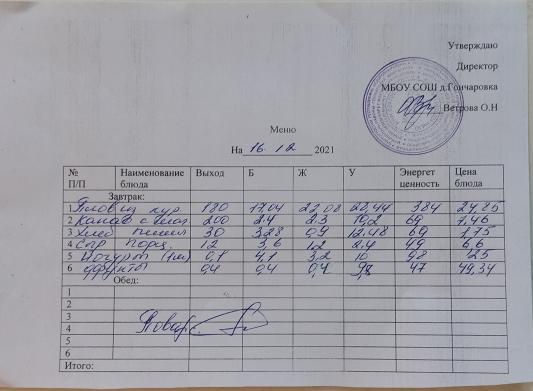 Утверждаю
Директор
МБОУ СОШ д.Гончаровка
Ветрова О.Н
Меню
На 16.12 2021
№ П/П Наименование блюда Выход Б Ж У Энергет ценность Цена блюда
Завтрак:
1 Плов из кур 180 17,04 22,08 28,44 384 24,85
2 Какао с мол 200 2.4 2.3 19,2 69 7,46
3 Хлеб пшен 30 3,28 0,9 12,48 60 1,75
4 Сыр порц. 12 3,6 1,2 49 6,6
5 Йогурт (1шт) 0,1 4,1 3,2 10 98 25
6 фрукты 0,4 0,4 0,4 9,8 47 49,34
Обед:
1
2
3
4 Повар
5
6
Итого: